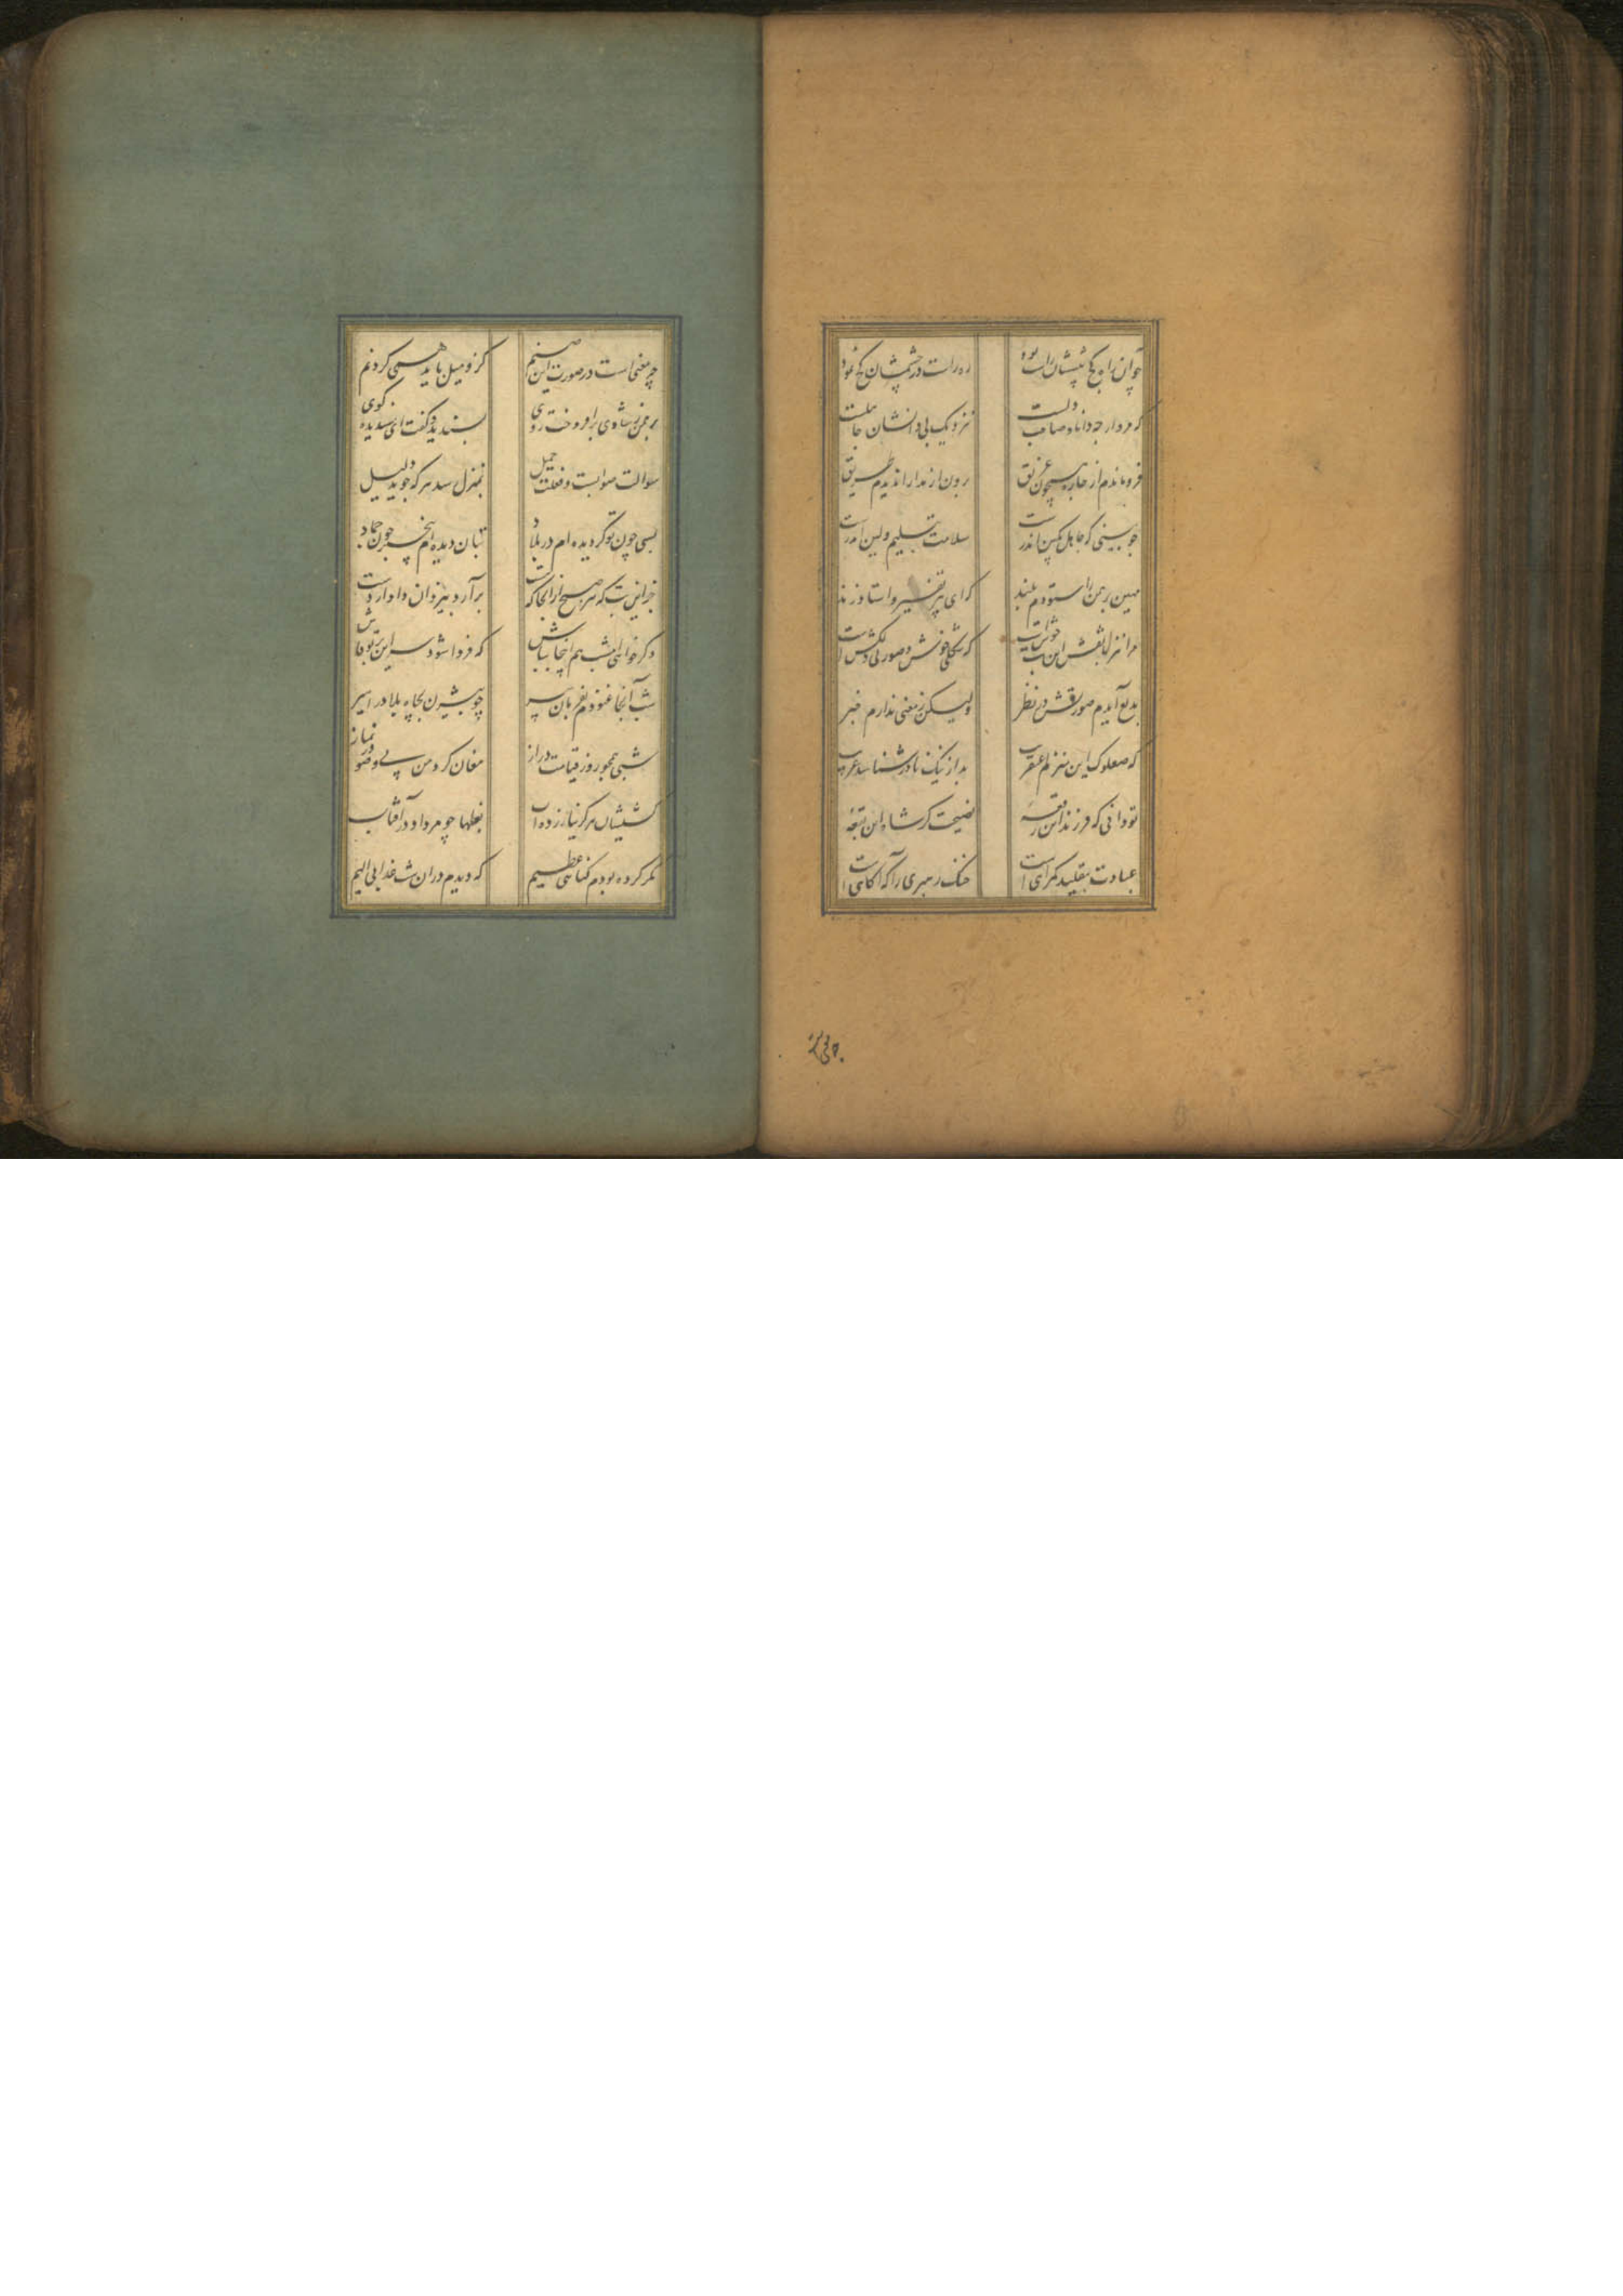 چو آن راه کج پیششان راست بود ره راست در چشمشان کج نمود
که مرد ارچه دانا و صاحب دلست بنزدیک بی دانشان جاهلست
فرو ماندم از چاره همچون غریق برون از مدارا ندیدم طریق
چو بینی که جاهل بکین اندرست سلامت بتسلیم و لین اندرست
مهین برهمن را ستودم بلند که ای پیر تفسیر و استا و زند
مرا نیز با نقش این بت خوشست که شکلی خوش و صورتی دلکشست
بدیع آیدم صورتش در نظر ولیکن ز معنی ندارم خبر
که صعلوک این منزلم عنقریب بد از نیک نادر شناسد غریب
تو دانی که فرزین این رقعه نصیحت گر شاه این بقعه
عبادت بتقلید گمراهی است خنک رهبری را که آگاهی است
چه معنی است در صورت این صنم کزو میل باید همی کردنم
برهمن ز شادی برافروخت روی پسندید و گفت ای پسندیده گوی
سوالت صوابست و فعلت جمیل بمنزل رسد هر که جوید دلیل
بسی چون تو گردیده ام در بلاد بتان دیده ام بی خبر چون جماد
جز این بت که هر صبح از آنجا که هست برآرد بیزدان دادار دست
وگر خواهی امشب هم اینجا بباش که فردا شود سر این بر تو فاش
شب آنجا غنودم بفرمان پیر چو بیژن بچاه بلا در اسیر
شبی همچو روز قیامت دراز مغان گرد من بی وضو در نماز
کشیشان هرگز نیازرده آب بغلها چو مردار در آفتاب
مگر کرده بودم گناهی عظیم که دیدم در آن شب عذابی الیم